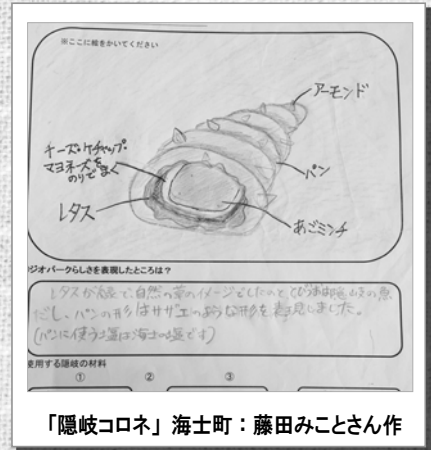 ※ここに絵をかいてください
アーモンド
チーズ・ケチャップ・
マヨネーズを
のりでまく
パン
レタス
あごミンチ
ジオパークらしさを表現したところは?
レタスが 自然の草のイメージでしたのと とびうおは隠岐の魚
だし、パンの形はサザエのような形を表現しました。
(パンに使う塩は海士の塩です)
使用する隠岐の材料
① ② ③
「隠岐コロネ」海士町:藤田みことさん作